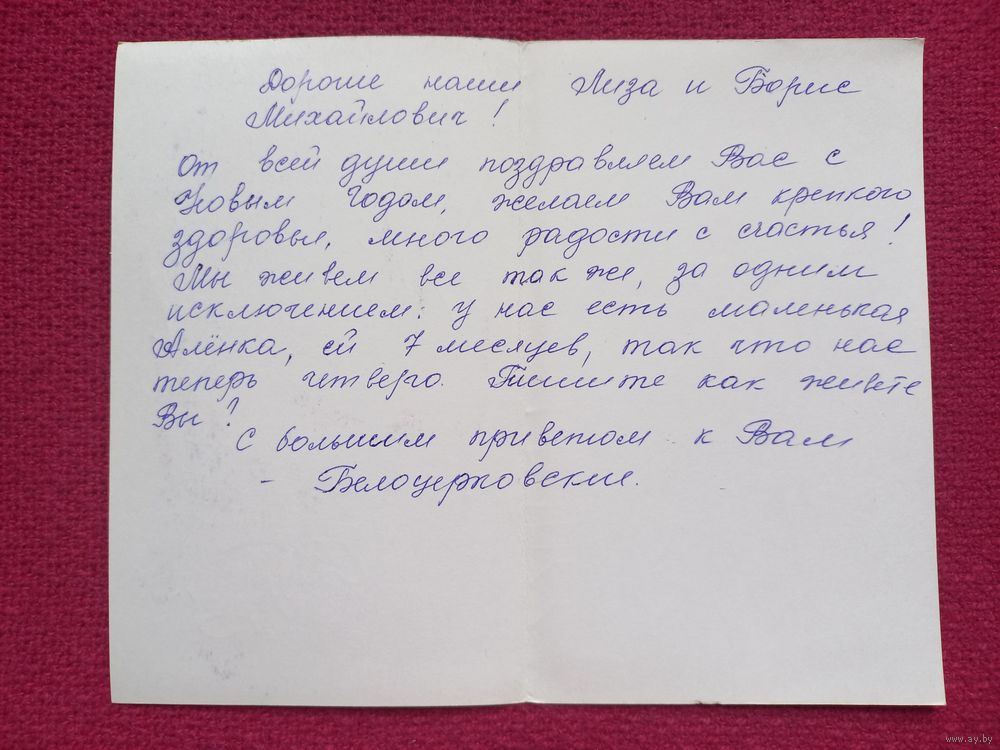 Дорогие наши Лиза и Борис
Михайлович!
От всей души поздравляем Вас с
Новым Годом, желаем Вам крепкого
здоровья, много радости с счастья!
Мы живем все так же, за одним
исключением: у нас есть маленькая
Алёнка, ей 7 месяцев, так что нас
теперь четверо. Пишите как живете
Вы?
С большим приветом к Вам
- Белоцерковские.
www.ay.by